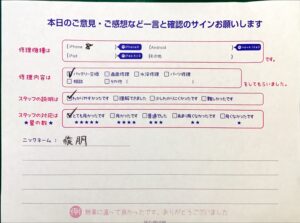 本日のご意見・ご感想など一言と確認のサインお願いします
修理機種は
iPhone
Android
iPad
その他
です。
修理内容は
バッテリー交換 画面修理 水没修理 パーツ修理
相談 その他
をしてもらいました。
スタッフの説明は
わかりやすかったです 理解できました 少しわかりにくかったです 難しかったです
スタッフの対応は
★星の数★
とても良かったです 良かったです 普通でした あまり良くなかったです 良くなかったです
★★★★★ ★★★★ ★★★ ★★ ★
ニックネーム： 俊朋
無事に直って良かったです。ありがとうございました。